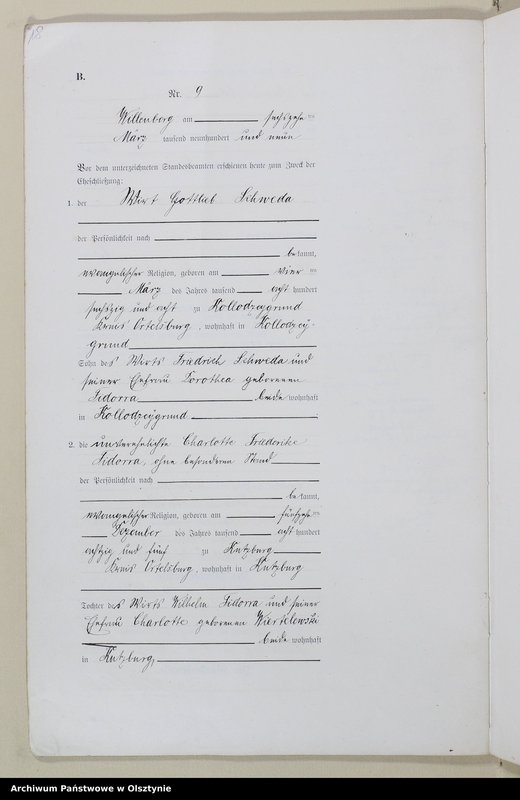 18
B.
Nr. 9
Willenberg am sechszehn ten
März tausend neunhundert und neun
Vor dem unterzeichneten Standesbeamten erschienen heute zum Zweck der
Eheschließung:
1. der Wirt Gottlieb Schweda
der Persönlichkeit nach
bekannt,
evangelischer Religion, geboren am vier ten
März des Jahres tausend acht hundert
sechszig und acht zu Kollodzeygrund
Kreis Ortelsburg, wohnhaft in Kollodzey-
grund
Sohn des Wirts Friedrich Schweda und
seiner Ehefrau Dorothea geborenen
Sidorra beide wohnhaft
in Kollodzeygrund
2. die unverehelichte Charlotte Friederike
Sidorra, ohne besonderen Stand
der Persönlichkeit nach
bekannt,
evangelischer Religion, geboren am fünfzehn ten
Dezember des Jahres tausend acht hundert
achtzig und fünf zu Kutzburg
Kreis Ortelsburg, wohnhaft in Kutzburg
Tochter des Wirts Wilhelm Sidorra und seiner
Ehefrau Charlotte geborenen Wiertelewski
beide wohnhaft
in Kutzburg,
Archiwum Państwowe w Olsztynie